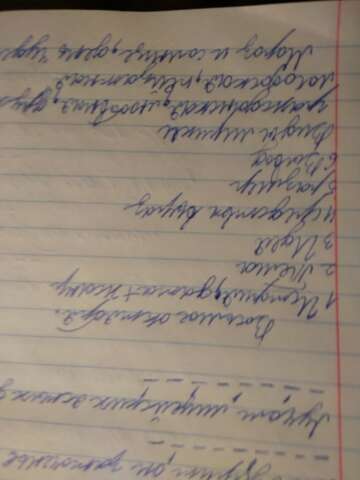 он заточенье
Лучом лицейских ясных д
Восьмое октября.
1 История, дата + жанр
2 Тема
3 Идея
4 средства выраз
5 размер
6 Вывод
Виды лирики
гражданская, любовная, друж
лософская, пейзажная
Мороз и солнце, день чуде